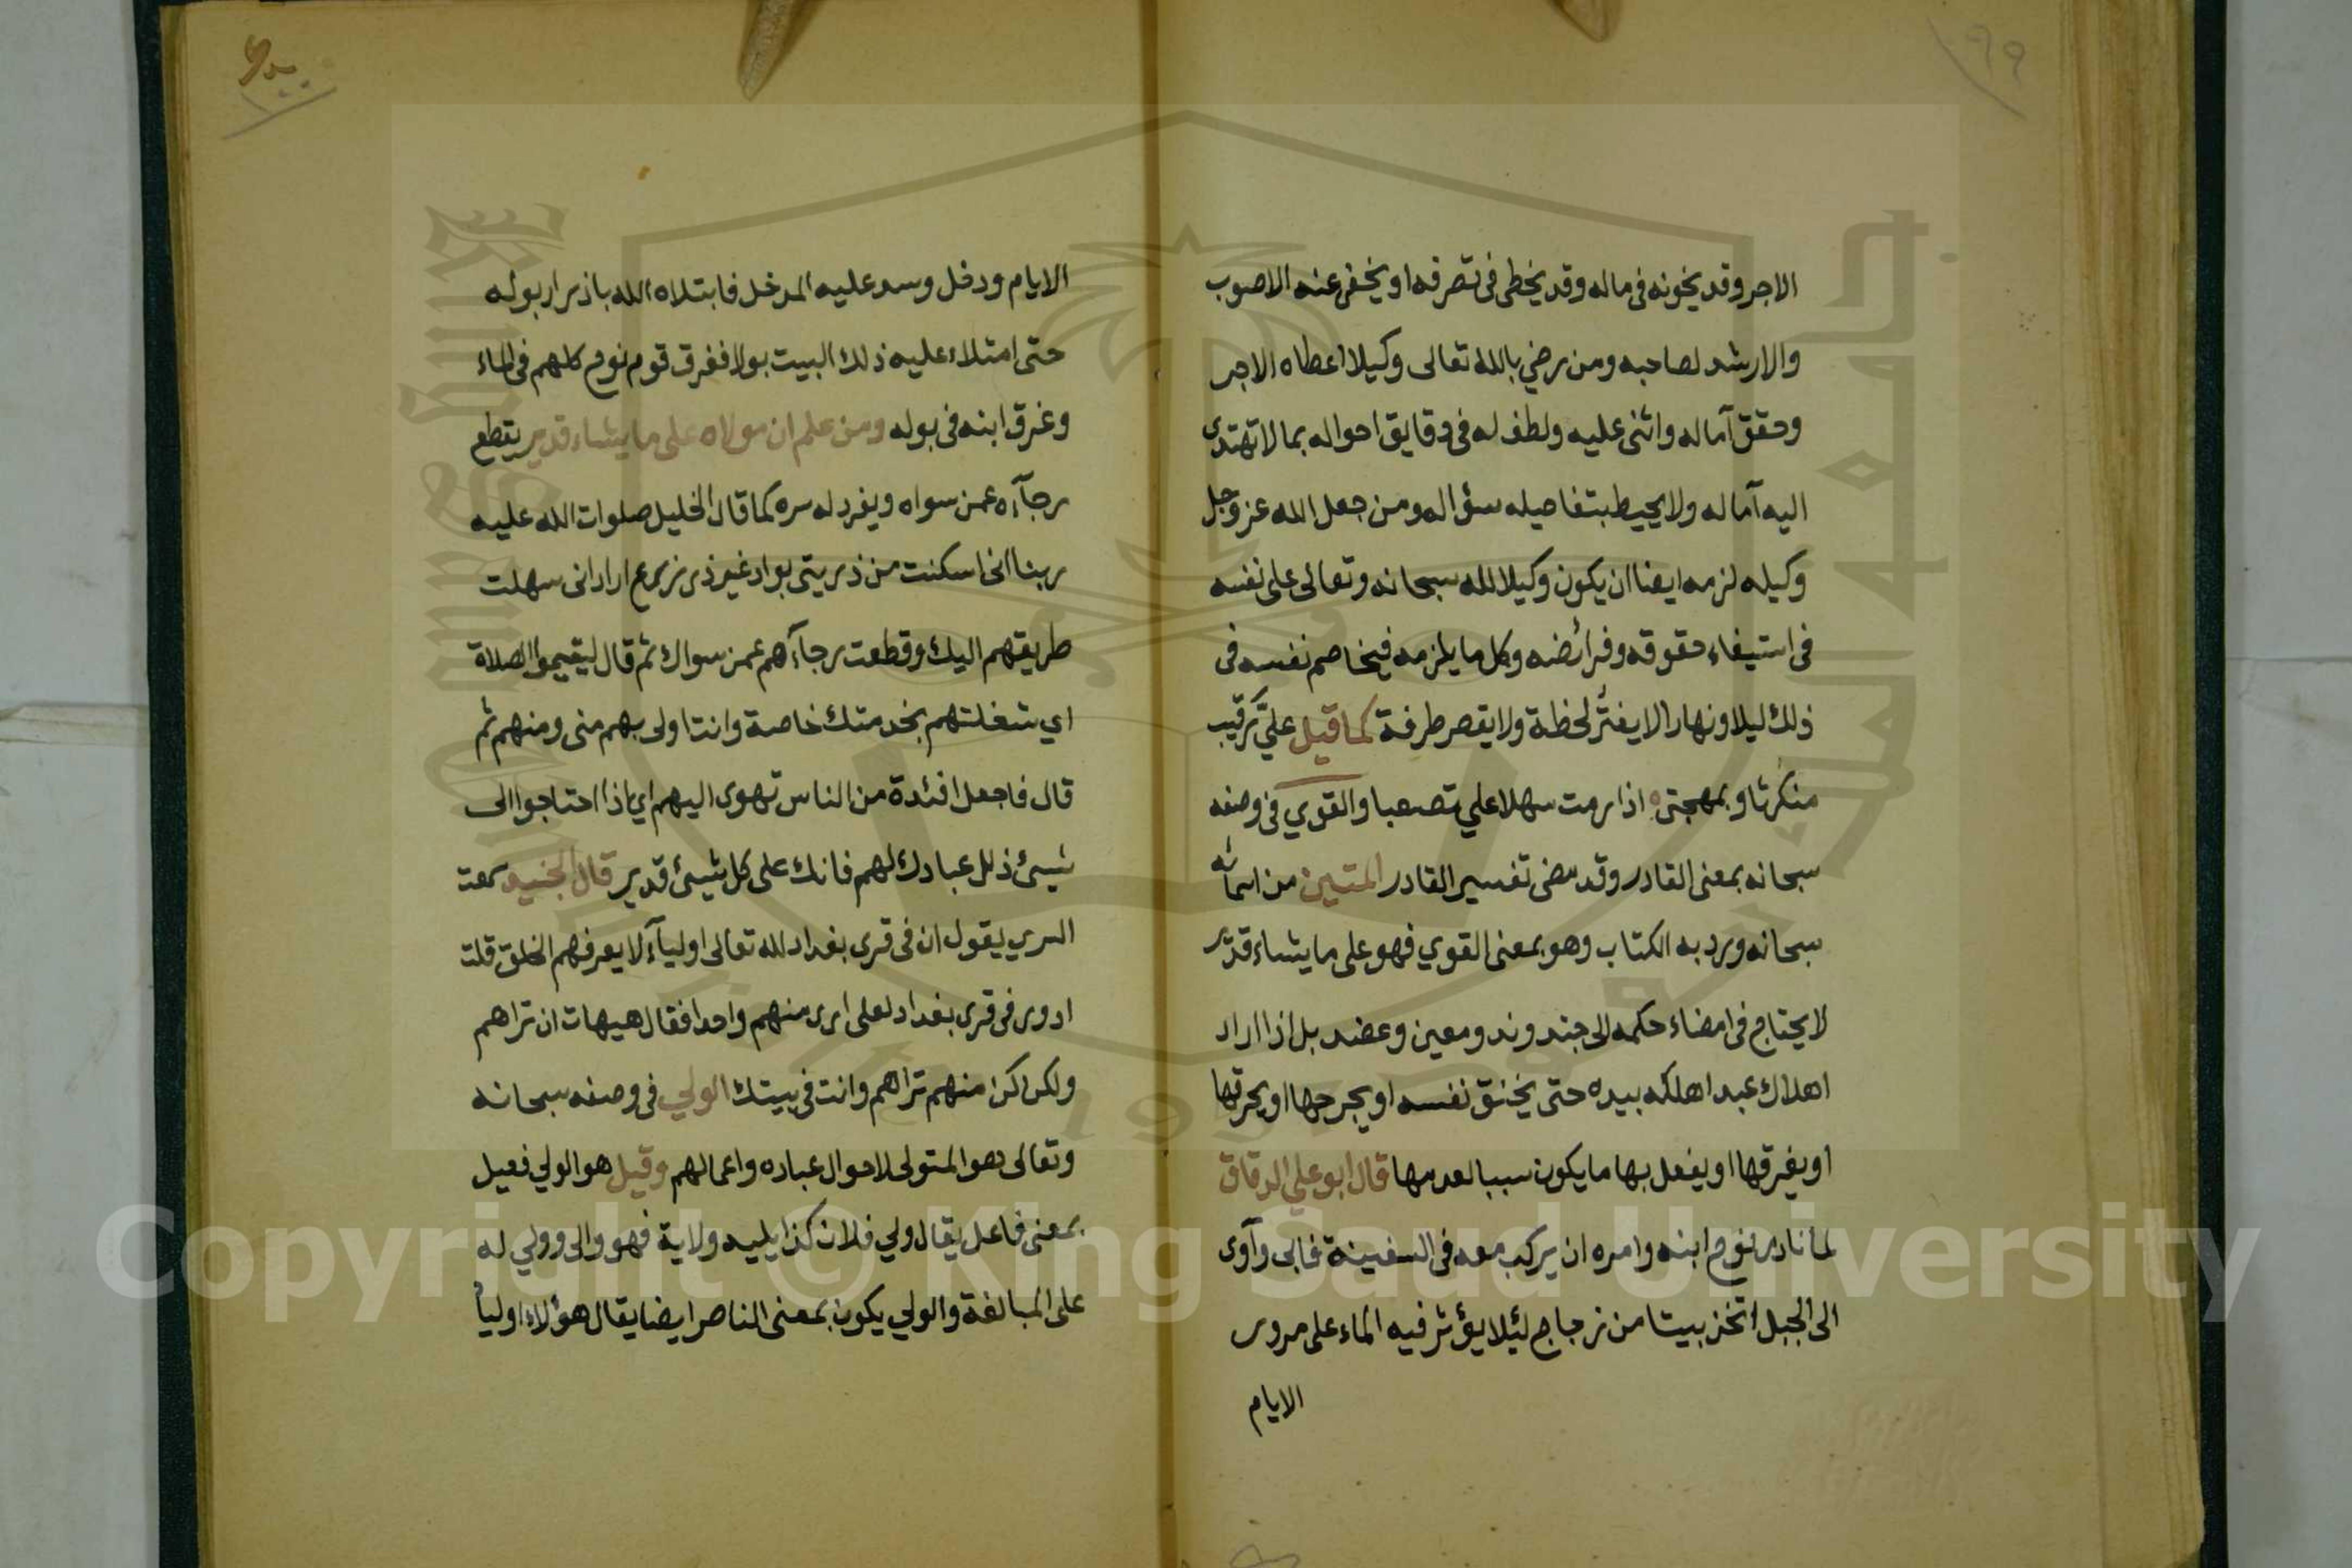 ٩٩
الاجر وقد يخونه فى ماله وقد يخطى فى تصرفه او يخفى عنه الاصوب
والارشد لصاحبه ومن رضي بالله تعالى وكيلا اعطاه الاجر
وحقق آماله واثنى عليه ولطف له فى دقايق احواله بما لا تهتدى
اليه آماله ولا يحيط بتفاصيله سؤاله ومن جعل الله عز وجل
وكيله لزمه ايضا ان يكون وكيلا لله سبحانه وتعالى على نفسه
فى استيفاء حقوقه وفرائضه وكل ما يلزمه فيخاصم نفسه فى
ذلك ليلا ونهارا لا يفتر لحظة ولا يقصر طرفة كما قيل عليّ رقيب
منك ثاو بمهجتى ه اذا رمت سهلا علي تصعبا والقوي فى وصفه
سبحانه بمعنى القادر وقد مضى تفسير القادر المتين من اسمائه
سبحانه ورد به الكتاب وهو بمعنى القوي فهو على ما يشاء قدير
لا يحتاج فى امضاء حكمه الى جند وند ومعين وعضد بل اذا اراد
اهلاك عبد اهلكه بيده حتى يخنق نفسه او يجرحها او يحرقها
او يغرقها او يفعل بها ما يكون سببا لعدمها قال ابو علي الدقاق
لما نادى نوح ابنه وامره ان يركب معه فى السفينة فابى وآوى
الى الجبل اتخذ بيتا من زجاج لئلا يؤثر فيه الماء على مرور
الايام
١٠٠
الايام ودخل وسد عليه المدخل فابتلاه الله باذرار بوله
حتى امتلاء عليه ذلك البيت بولا فغرق قوم نوح كلهم فى الماء
وغرق ابنه فى بوله ومن علم ان مولاه على ما يشاء قدير يقطع
رجآءه عمن سواه ويفرد له سره كما قال الخليل صلوات الله عليه
ربنا انى اسكنت من ذريتى بواد غير ذى زرع اراد انى سهلت
طريقهم اليك وقطعت رجآءهم عمن سواك ثم قال ليقيموا الصلاة
اي شغلتهم بخدمتك خاصة وانت اولى بهم منى ومنهم ثم
قال فاجعل افئدة من الناس تهوى اليهم اي اذا احتاجوا الى
شيئ ذلل عبادك لهم فانك على كل شيئ قدير قال الجنيد سمعت
السري يقول ان فى قرى بغداد لله تعالى اوليآء لا يعرفهم الخلق قلت
ادور فى قرى بغداد لعلى ارى منهم واحدا فقال هيهات ان تراهم
ولكن كن منهم تراهم وانت فى بيتك الولي فى وصفه سبحانه
وتعالى هو المتولى لاحوال عباده واعمالهم وقيل هو الولي فعيل
بمعنى فاعل يقال ولي فلان كذا يليه ولاية فهو والى وولي له
على المبالغة والولي يكون بمعنى الناصر ايضا يقال هؤلاء اولياء
Copyright © King Saud University